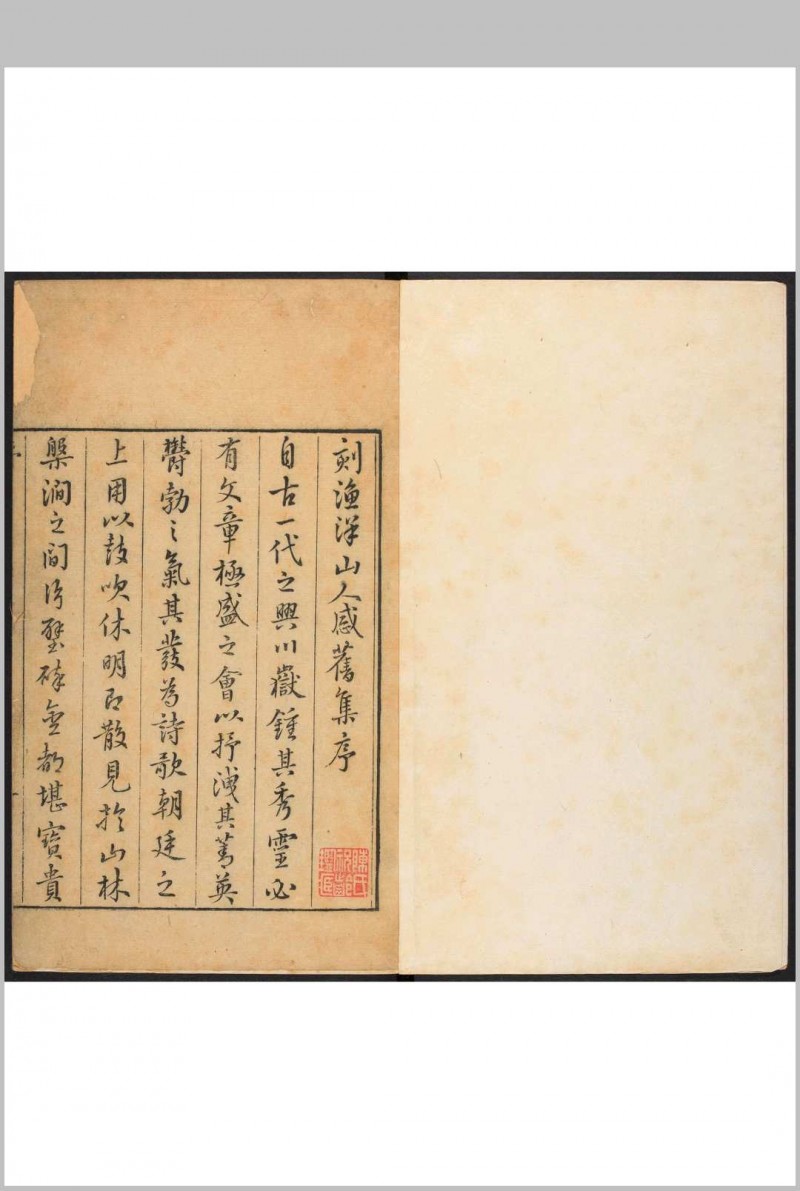 刻漁洋山人感舊集序
自古一代之興川嶽鍾其秀靈必
有文章極盛之會以抒洩其菁英
欝勃之氣其發為詩歌朝廷之
上用以鼓吹休明即散見於山林
槃澗之間片璧碎金都堪寶貴